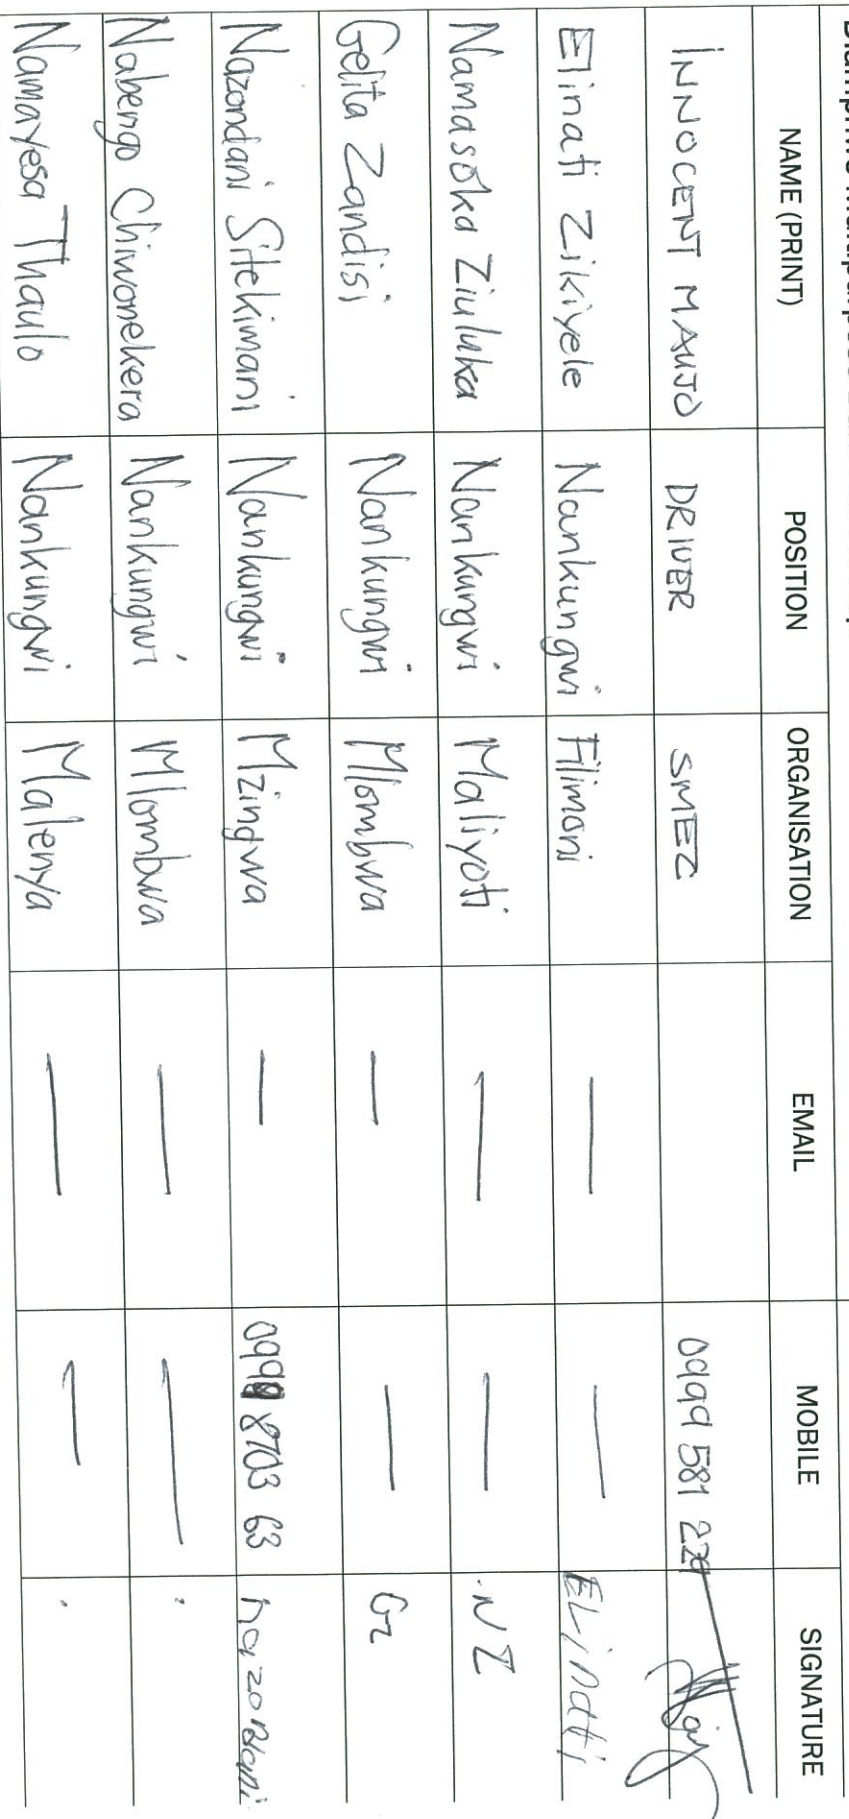 NAME (PRINT) POSITION ORGANISATION EMAIL MOBILE SIGNATURE
INNOCENT MAUJO DRIVER SMEC 0999 581 229
Elinati Zikiyele Nankungwi Filimoni — — ELinati
Namasoka Ziuluka Nankungwi Maliyoti — — NZ
Gelita Zandisi Nankungwi Mlombwa — — GZ
Nazondani Sitekimani Nankungwi Mzingwa — 0999 8703 63 nazondani
Nabengo Chiwonekera Nankungwi Mlombwa — — .
Namayesa Thaulo Nankungwi Malenya — — .